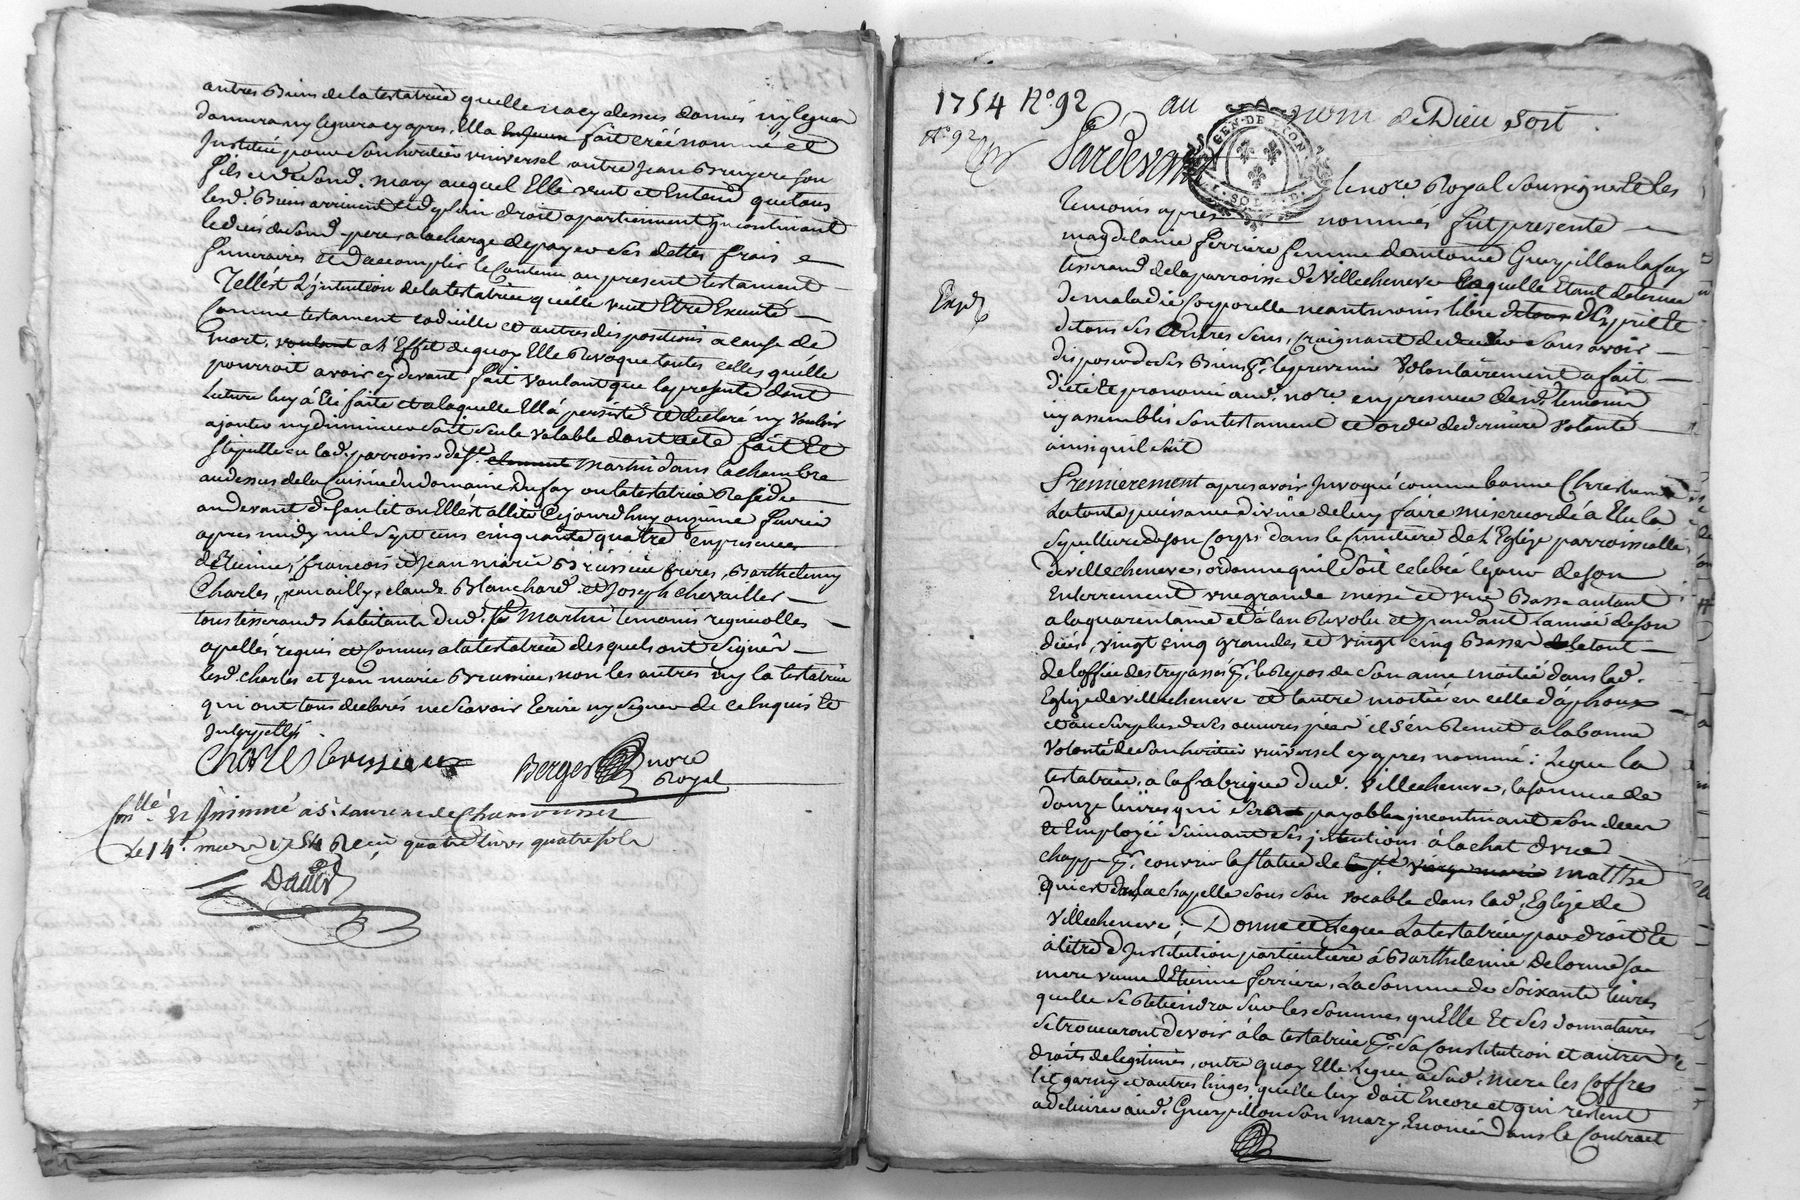 autres Biens de la testatrice quelle na cy dessus donnés ny leguer
donnera ny leguera cy apres, Ella fait créé nommé et
Institué pour son heritier universel autre Jean Bruyere son
fils et dud. feu. mary auquel Elle veut et Entend que tous
lesd. Biens arrivent et de plein droit apartiennent Incontinant
le décès de son d. pere, a la charge de payer ses dettes frais
funeraires et d'accomplir le Contenu au present testament
Tellést L'jntention de la testatrice qu'elle veut Etre Executé
Comme testament codicille et autres dispositions a cause de
mort, voulant a l'Effet de quoy Elle Revoque toutes celles quélle
pourroit avoir cy devant fait voulant que la presente dont
lecture luy á Eté faite et a laquelle Ell'a persisté et declaré ny vouloir
ajouter ny diminuer soit seule valable dont acte fait et
stipullé en lad. parroisse de St. clement Martin dans la chambre
au dessus de la Cuisine du domaine Dufay ou la testatrice Reside
au devant de son lit ou Ellést allitée Cejourd'huy onzieme fevrier
apres midy mil sept cens cinquante quatre en presence
d'Etienne, francois et Jean marie Brissieu freres, Barthelemy
Charles, claude Blanchard et Joseph chevallier
tous tisserands habitants dud. St. Martin temoins
apellés requis et Connus a la testatrice desquels ont Signés
lesd. charles et Jean marie Brissieu, non les autres ny la testatrice
qui ont tous declarés ne Scavoir Ecrire ny Signer de ce Enquis et
Interpellés
Charles brissieux Berger nore
Royal
Conllé. et Insinué a St. Laurent de Chamousset
Le 14e. mars 1754 Recu quatre livres quatre sols
David
1754 No. 92 au nom de Dieu soit
No. 92
GEN. DE LYON
SOLS
Pardevant
le nore Royal Soussigné et les
temoins apres nommés fut presente
magdelaine ferriere femme d'antoine Guerpillon lafay
tisserand de la parroisse de Villecheneve laquelle Etant detenue
Expd
de maladie corporelle neantmoins libre de tous d'Esprit et
de tous ses autres sens, craignant de deceder sans avoir
disposer de ses Biens pr. le prevenir Volontairement a fait
dicté et prononcé aud. nore. en presence desd. temoins
icy assemblés son testament et ordre de derniere volonté
ainsi quil suit
Premierement apres avoir Invoqué comme bonne Chretienne
La toute puissance divine de luy faire misericorde á Elu la
sepulture de son Corps dans le cimitiere de l'Eglise parroissialle
de villecheneve, ordonne quil soit celebré le jour de son
Enterrement une grande messe et une Basse autant
a la quarentaine et á l'an Revolu et pendant l'année de son
décés, vingt cinq grandes et vingt cinq Basses le tout
de l'office des trepassés pr. le Repos de son ame moitié dans lad.
Eglise de villecheneve et l'autre moitié en celle d'aphoux
et au surplus des œuvres pies il s'en Remet a la bonne
volonté de son heritier universel cy apres nommé: Legue la
testatrice, a la fabrique dud. Villecheneve, la somme de
douze livres qui sera payable incontinant son deces
et Employée suivant ses jntentions á lachat d'une
chappe pr. couvrir la statue de la ste vierge marie Matthe
qui est dans la chapelle sous son vocable dans lad. Eglise de
Villecheneve; Donne et Legue La testatrice par droit et
a titre d'Institution particuliere á Barthelemie Delorme sa
mere veuve d'Etienne ferriere, La somme de soixante livres
quelle se Retiendra sur les sommes quElle Et ses donnataires
se trouveront devoir á la testatrice pr. sa Constitution et autres
droits de legitimes, outre quoy Elle Legue a sad. mere les Coffres
lit garny et autres linges, quelle luy doit Encore et qui restent
a delivrer aud. Guerpillon son mary, Enoncés dans le Contract